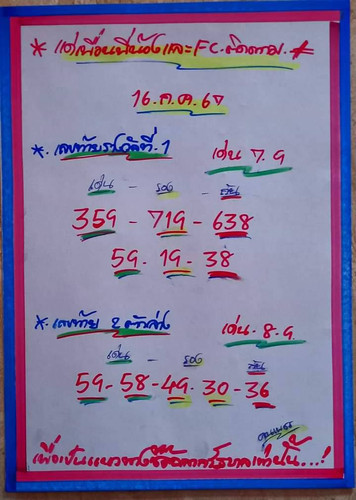 * แด่เพื่อนพี่น้องและ FC. ติดตาม. *
16. ต. ค. 67
*. เลขท้ายรางวัลที่. 1
เด่น 7. 9
เด่น - รอง - กัน
359 - 719 - 638
59. 19 - 38
*. เลขท้าย 2 ตัวล่าง
เด่น. 8. 9
เด่น - รอง กัน
59 - 58 - 49. 30 - 36
เพื่อเป็นแนวทางซื้อสลากรัฐบาลเท่านั้น...!